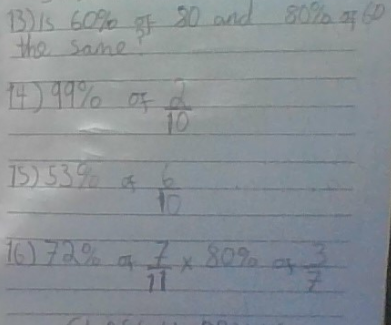 13) is 60% of 80 and 80% of 60
the same?
14) 99% of 2/10
15) 53% of 6/10
16) 72% of 7/11 × 80% of 3/7